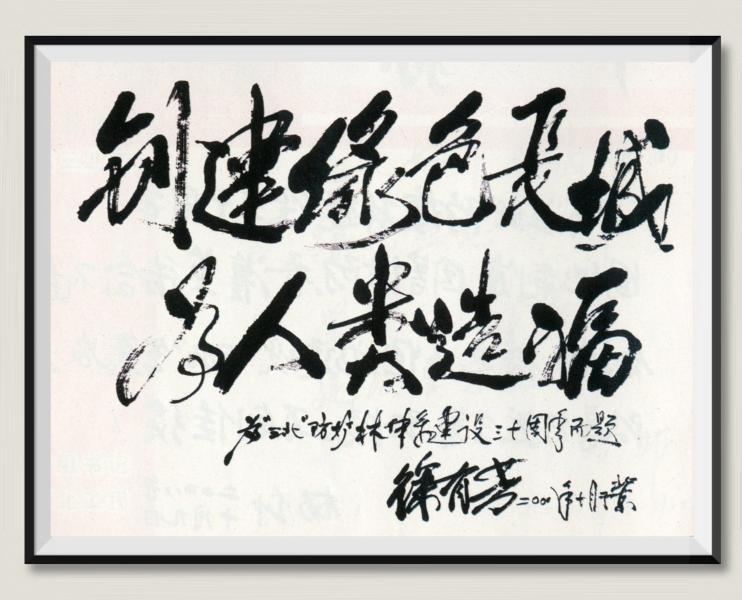 创建绿色长城
为人类造福
为“三北”防护林体系建设三十周年而题
徐有芳 二〇〇八年十月于北京